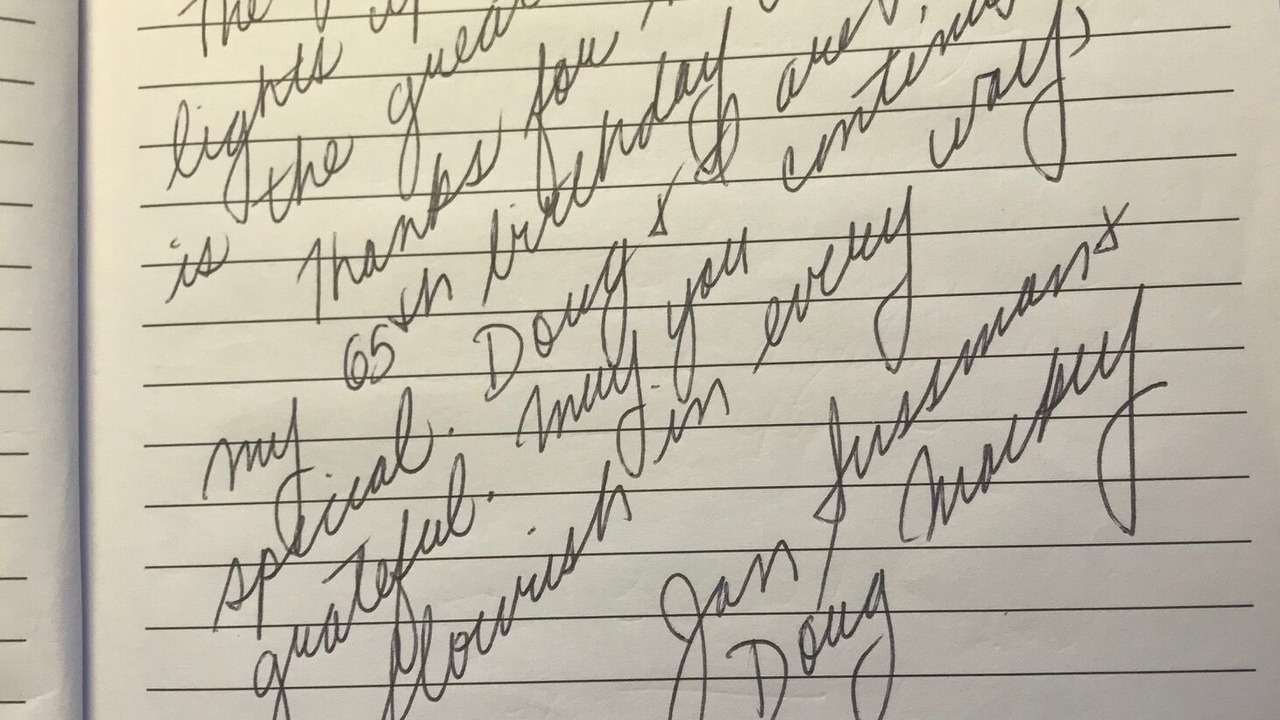 The
lights
is the
Thanks for
my 65th birthday
special. Doug & I are
grateful. May you
flourish in every way,
Jan Fursman &
Doug Mackey